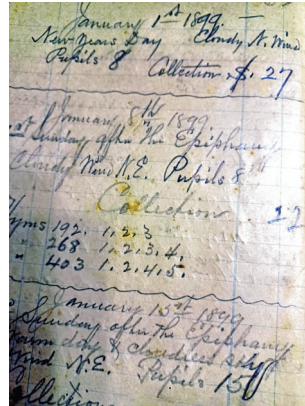 January 1st 1899 —
New Years Day Cloudy N. Wind
Pupils 8 Collection $. 27
January 8th 1899
st Sunday after the Epiphany
Cloudy Wind N.E. Pupils 8
Collection
yms 192. 1.2.3
" 268 1.2.3.4.
" 403 1.2.4.5.
January 15th 1899
Sunday after the Epiphany
arm day & cloudless sky
ind N.E. Pupils 15
ollection